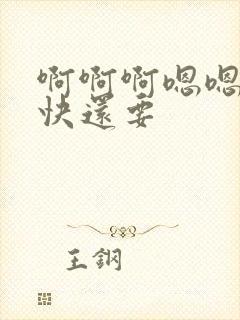 啊啊啊嗯嗯
快還要
王鋼